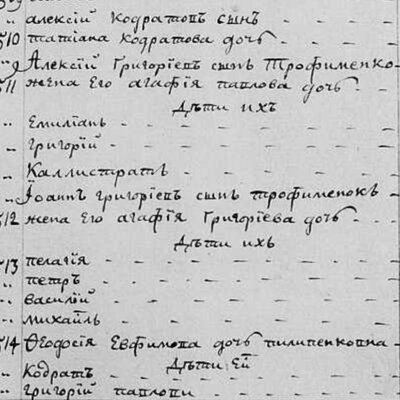 „ алексїй Кодратовъ сынъ
510 татїана кодратова дочь
„ Алексїй Григорїевъ сынъ Трофименко
511 жена Его агафїя павлова дочь
Дѣти ихъ
„ Емилїанъ
„ Григорїй
„ Каллистратъ
„ Їоаннъ григорїевъ сынъ трофименокъ
512 жена Его агафїя Григорїева дочь
Дѣти ихъ
513 пелагїя
„ петръ
„ василїй
„ михаилъ
514 Ѳеодосїя Евфимова дочь пилипенковна
Дѣти Ей
„ Кодратъ
„ григорїй павловы